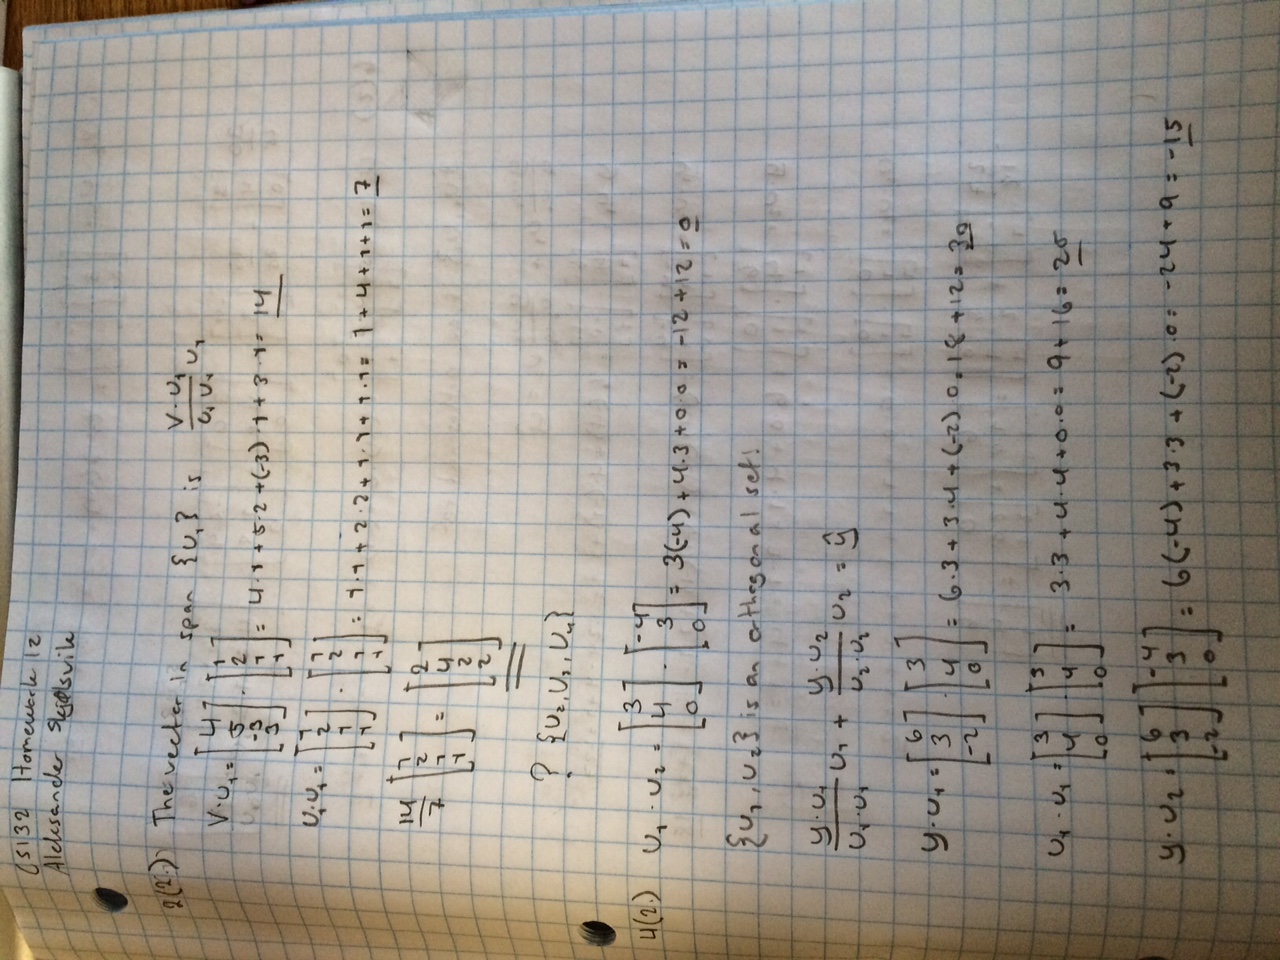 CS132 Homework 12
Aleksander Skjølsvik
2(2.) The vector in span {u₁} is (v·u₁)/(u₁ u₁) u₁
V·u₁ = [4 5 -3 3] · [1 2 1 1] = 4·1+5·2+(-3)·1+3·1= 14
u₁·u₁ = [1 2 1 1] · [1 2 1 1] = 1·1+2·2+1·1+1·1= 1+4+1+1= 7
14/7 [1 2 1 1] = [2 4 2 2]
? {u₂,u₃,u₄}
4(2.) u₁ · u₂ = [3 4 0] · [-4 3 0] = 3(-4)+4·3+0·0 = -12+12 = 0
{u₁,u₂} is an orthogonal set!
(y·u₁)/(u₁·u₁) u₁ + (y·u₂)/(u₂·u₂) u₂ = ŷ
y·u₁ = [6 3 -2] · [3 4 0] = 6·3+3·4+(-2) 0=18+12= 30
u₁·u₁ = [3 4 0] · [3 4 0] = 3·3+4·4+0·0= 9+16= 25
y·u₂ = [6 3 -2] [-4 3 0] = 6(-4)+3·3+(-2)·0= -24+9 = -15